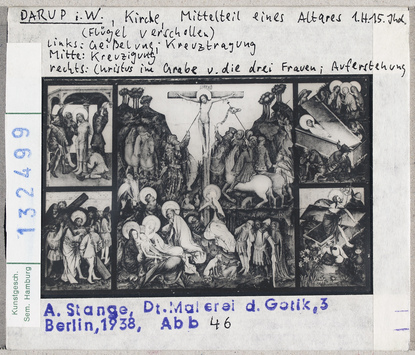 DARUP i.W., Kirche, Mittelteil eines Altares 1.H.15.Jhd.
(Flügel verschollen)
Links: Geißelung; Kreuztragung
Mitte: Kreuzigung
rechts: Christus im Grabe u. die drei Frauen; Auferstehung
132499
Kunstgesch.
Sem. Hamburg
A. Stange, Dt. Malerei d. Gotik, 3
Berlin, 1938, Abb 46